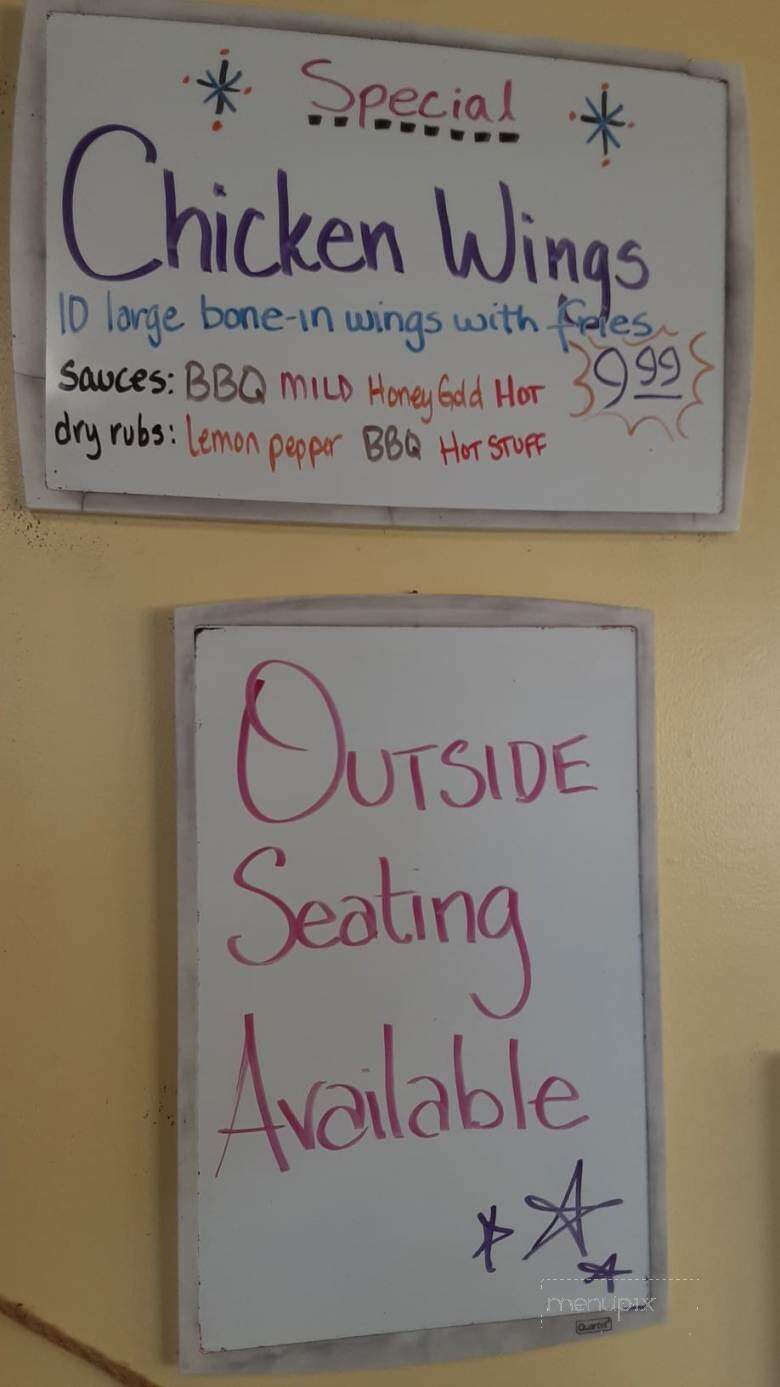 Special
Chicken Wings
10 large bone-in wings with fries
Sauces: BBQ MILD Honey Gold HOT
9.99
dry rubs: Lemon pepper BBQ HOT STUFF
OUTSIDE
Seating
Available
menupix
Quartet